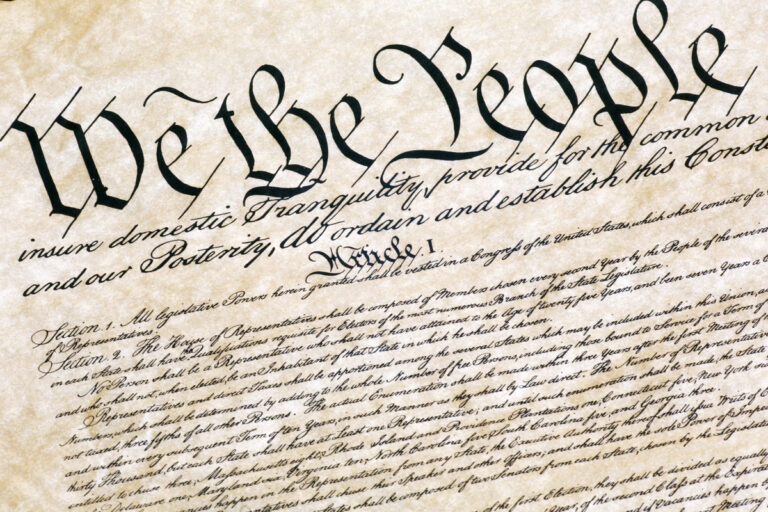 We the People
insure domestic Tranquility, provide for the common
and our Posterity, do ordain and establish this Consti
Article. I.
Section. 1. All legislative Powers herein granted shall be vested in a Congress of the United States, which shall consist of a
of Representatives.
Section. 2. The House of Representatives shall be composed of Members chosen every second Year by the People of the several
in each State shall have the Qualifications requisite for Electors of the most numerous Branch of the State Legislature.
No Person shall be a Representative who shall not have attained to the Age of twenty five Years, and been seven Years a C
and who shall not, when elected, be an Inhabitant of that State in which he shall be chosen.
Representatives and direct Taxes shall be apportioned among the several States which may be included within this Union, a
Numbers, which shall be determined by adding to the whole Number of free Persons, including those bound to Service for a Term of
not taxed, three fifths of all other Persons. The actual Enumeration shall be made within three Years after the first Meeting of
and within every subsequent Term of ten Years, in such Manner as they shall by Law direct. The Number of Representati
thirty Thousand, but each State shall have at Least one Representative; and until such enumeration shall be made, the State
entitled to chuse three, Massachusetts eight, Rhode Island and Providence Plantations one, Connecticut five, New York six
Delaware one, Maryland six, Virginia ten, North Carolina five, South Carolina five, and Georgia three.
happen in the Representation from any State, the Executive Authority thereof shall issue Writs of
shall chuse their Speaker and other Officers; and shall have the sole Power of Impe
shall be composed of two Senators from each State, chosen by the Legislatu
of the first Election, they shall be divided as equally
Year, of the second Class at the Expirat
if Vacancies happen by